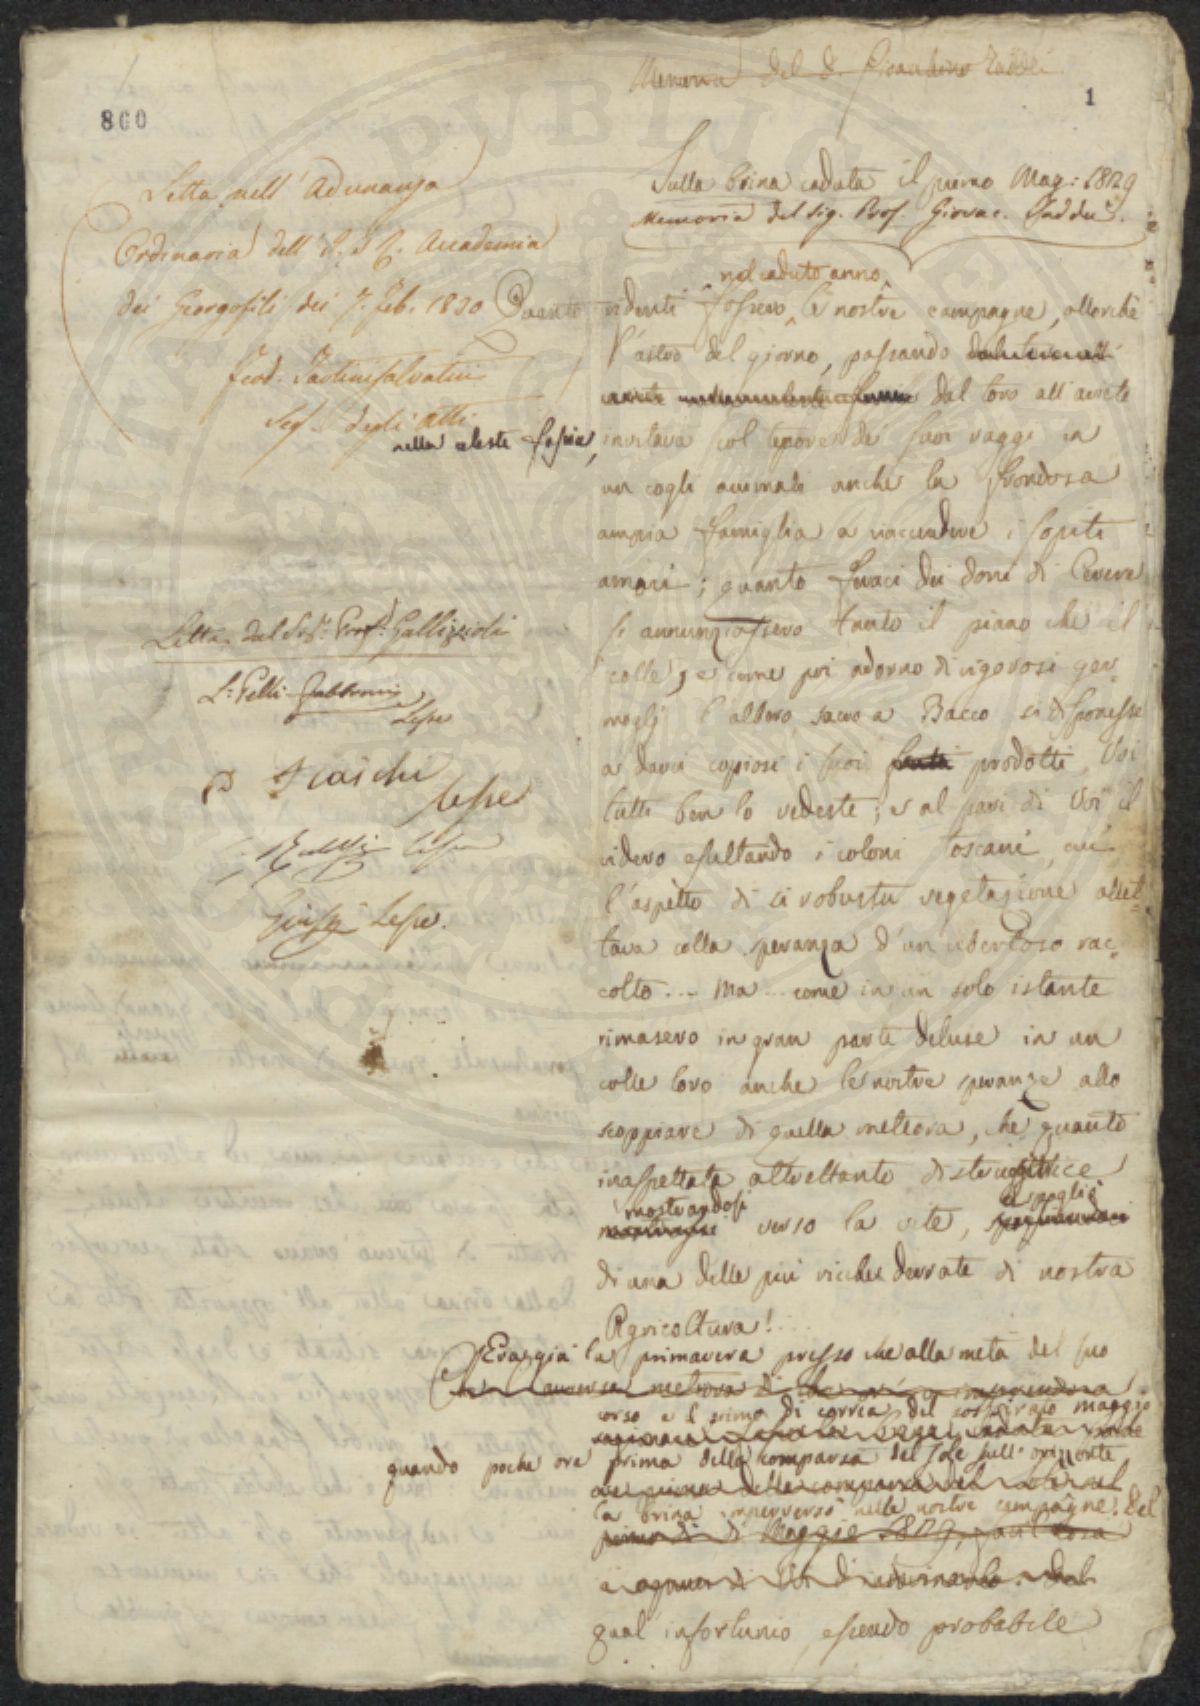 Memoria del d. Gioacchino Taddei
800
1
Letta nell' Adunanza
Ordinaria dell' I. e R. Accademia
dei Georgofili dei 7. Feb. 1830
Ferd. Tartini Salvatici
Seg. degli Atti
Sulla brina caduta il primo Mag: 1829
Memoria del Sig. Prof. Giovac. Taddei.
nel caduto anno
Quanto ridenti fossero le nostre campagne, allorchè
l'astro del giorno, passando
dal toro all'ariete
nella celeste fascia,
invitava col tepore de' suoi raggi in
un cogli animali anche la frondosa
ampia famiglia a riaccendere i sopiti
amori; quanto feraci dei doni di Cerere
si annunziassero tanto il piano che il
colle, e come poi adorno di vigorosi ger
mogli l'albero sacro a Bacco si disponesse
a darci copiosi i suoi frutti prodotti, Voi
tutti ben lo vedeste; e al pari di Voi il
videro esultando i coloni toscani, cui
l'aspetto di sì robusta vegetazione allet=
tava colla speranza d'un ubertoso rac=
colto... Ma... come in un solo istante
rimasero in gran parte deluse in un
colle loro anche le nostre speranze allo
scoppiare di quella meteora, che quanto
inaspettata altrettanto disterminatrice
mostrandosi verso la vite, ci spogliò
di una delle più ricche derrate di nostra
Agricoltura!...
Era già la primavera presso che alla metà del suo
corso e il primo dì correa del sospirato maggio
quando poche ore prima della comparsa del sole sull'orizzonte
ore prima della comparsa del sole nel
la brina imperversò nelle nostre campagne. Del
primo dì di Maggio 1829,
qual infortunio, essendo probabile
Letta dal Sig.r Prof.r Gallizzioli
L: Pelli-Fabbroni
Lesse
Fraschi
Lesse
Lesse
Giusp Lesse.